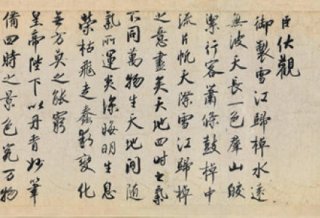 臣伏觀
御製雪江歸棹水遠
無波天長一色群山皎
潔行客蕭條鼓棹中
流片帆天際雪江歸棹
之意盡矣天地四時之氣
不同萬物生天地間隨
氣所運炎涼晦明生息
榮枯飛走蠢動變化
無方莫之能窮
皇帝陛下以丹青妙筆
備四時之景色究萬物